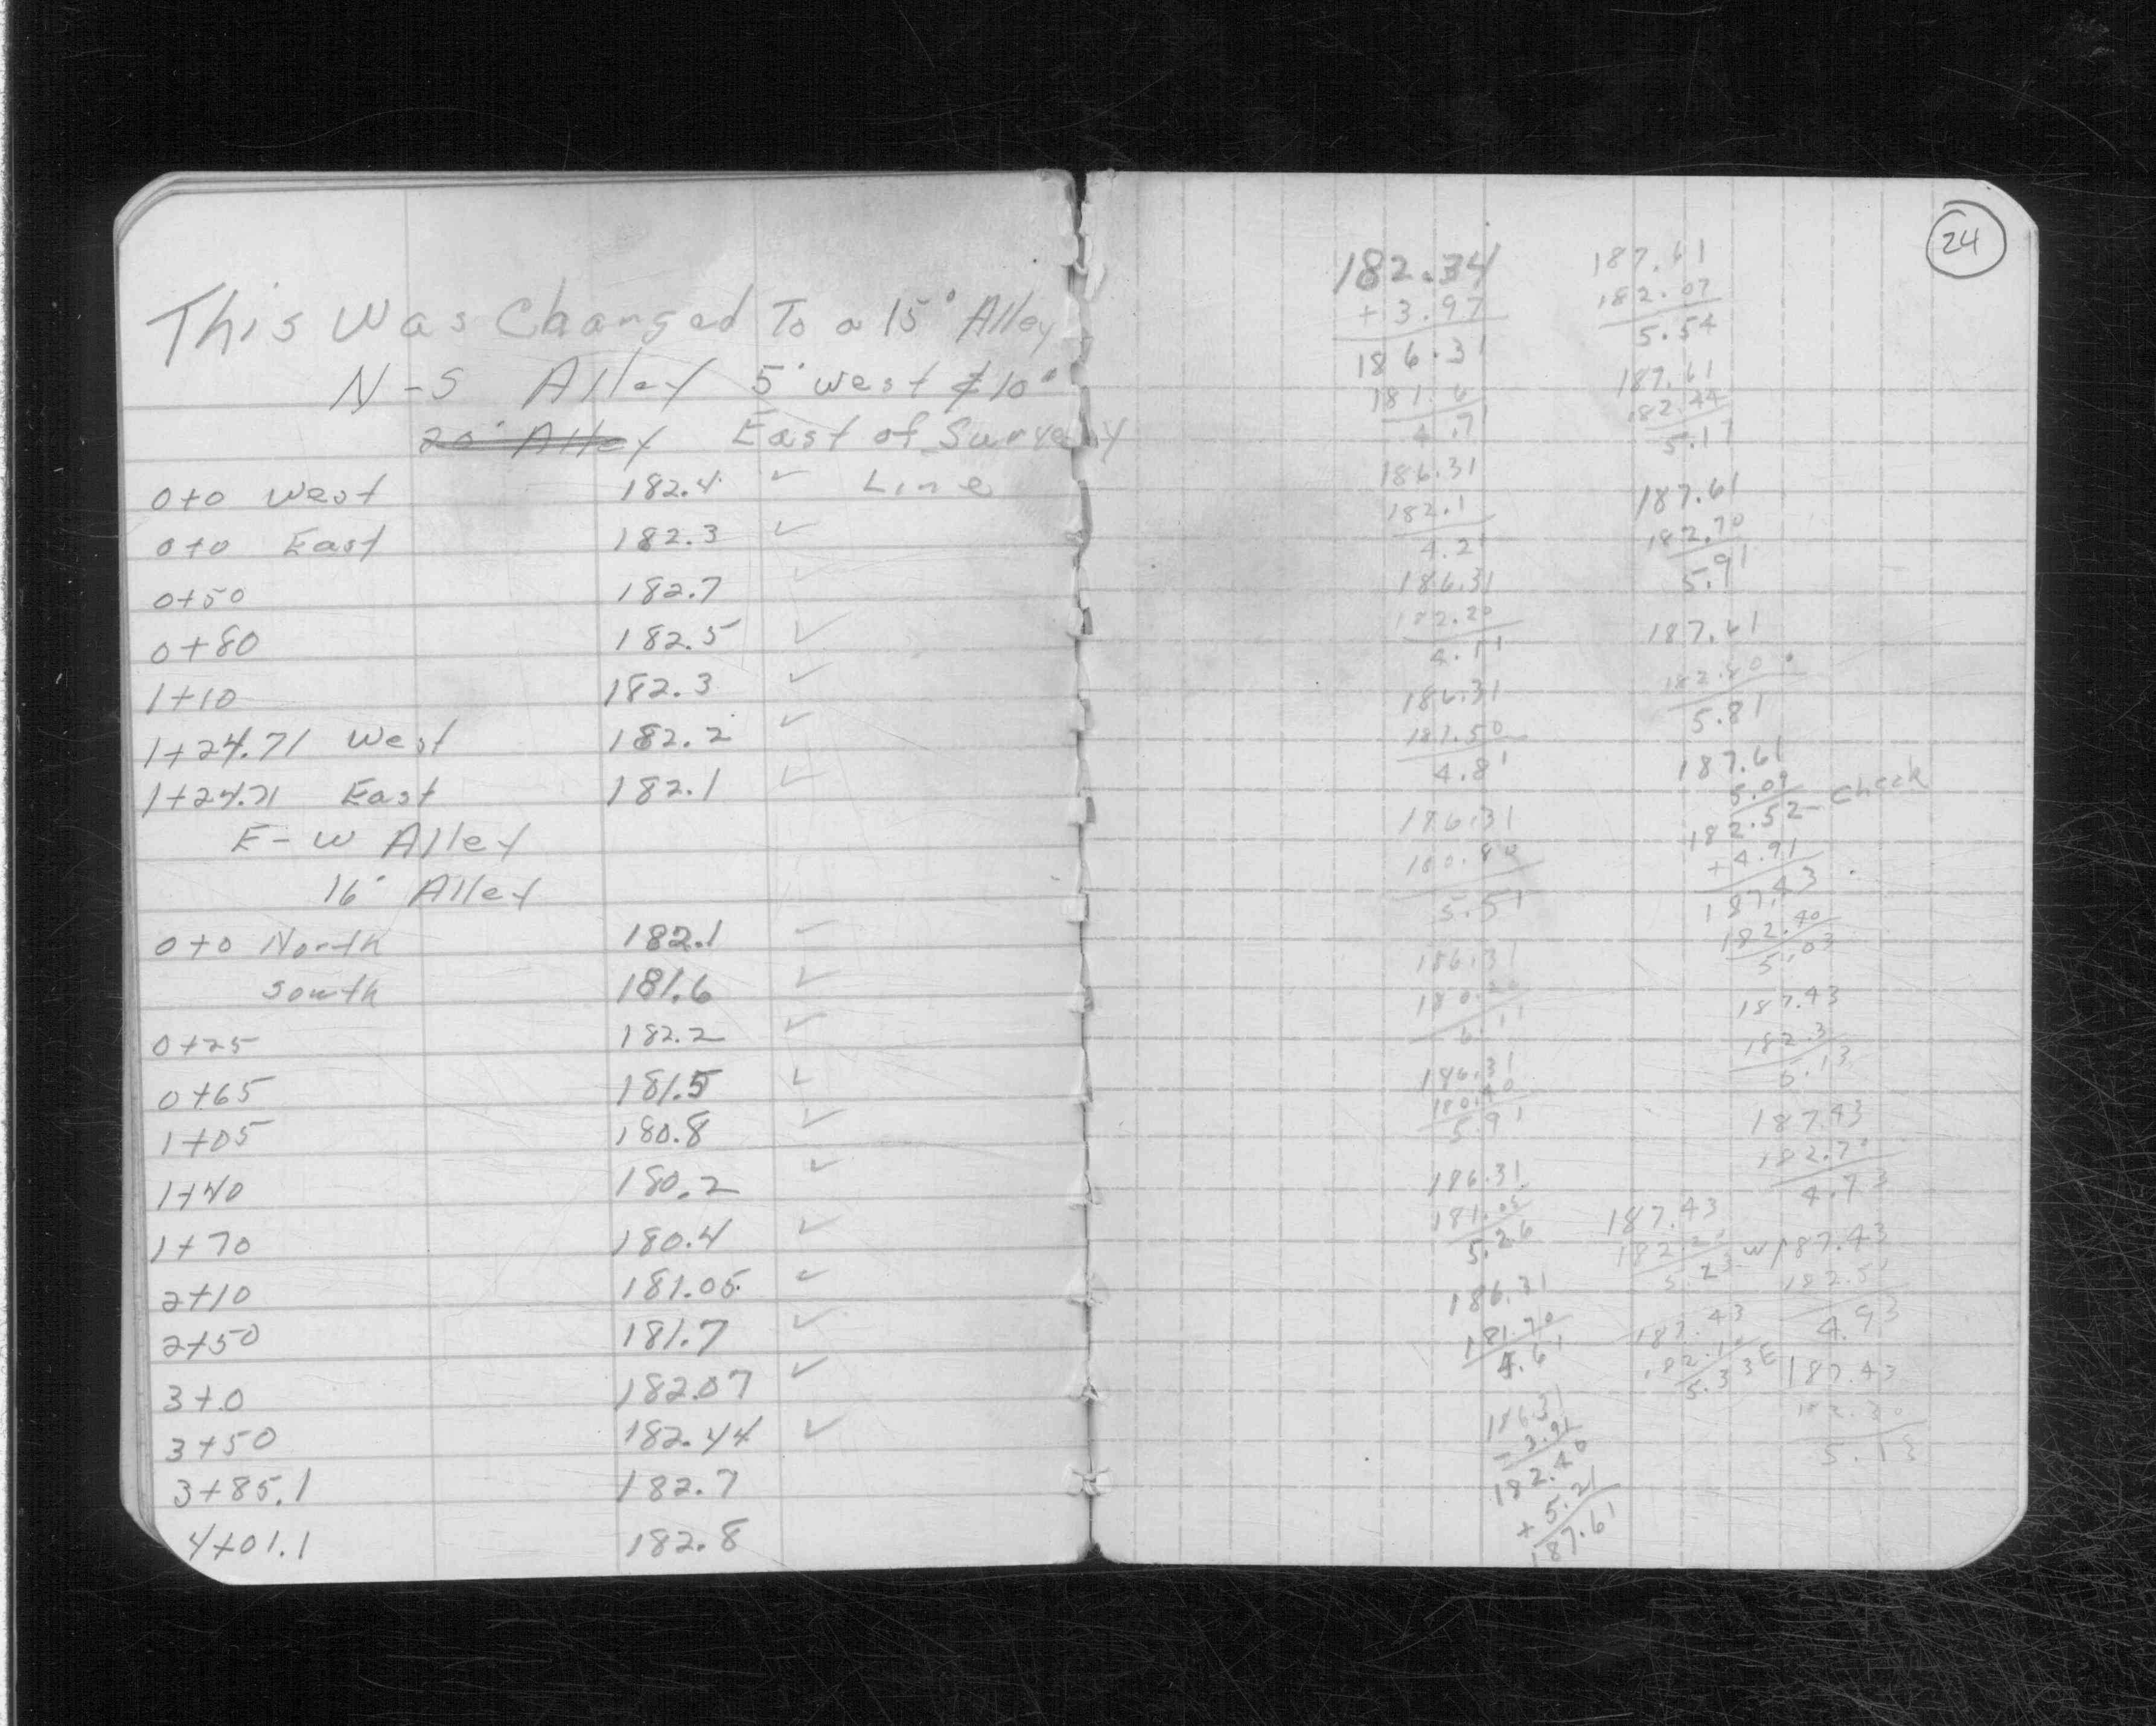 This Was Changed To a 15' Alley
N-S Alley 5' West & 10'
20' Alley East of Survey
0+0 West 182.4 ✓ Line
0+0 East 182.3 ✓
0+50 182.7 ✓
0+80 182.5 ✓
1+10 182.3 ✓
1+24.71 West 182.2 ✓
1+24.71 East 182.1 ✓
E-W Alley
16' Alley
0+0 North 182.1 ✓
South 181.6 ✓
0+25 182.2 ✓
0+65 181.5 ✓
1+05 180.8 ✓
1+40 180.2 ✓
1+70 180.4 ✓
2+10 181.05 ✓
2+50 181.7 ✓
3+0 182.07 ✓
3+50 182.44 ✓
3+85.1 182.7
4+01.1 182.8
24
182.34
+3.97
186.31
181.6
4.71
186.31
182.1
4.21
186.31
182.20
4.11
186.31
181.50
4.81
186.31
180.80
5.51
186.31
180.20
6.11
186.31
180.40
5.91
186.31
181.05
5.26
186.31
181.70
4.61
186.31
-3.91
182.40
+5.21
187.61
187.61
182.07
5.54
187.61
182.44
5.17
187.61
182.70
5.91
187.61
182.80
5.81
187.61
5.09
182.52 - Check
+4.91
187.43
182.40
5.03
187.43
182.3
5.13
187.43
182.70
4.73
187.43
182.20
5.23 W
187.43
182.10
5.33 E
187.43
182.5
4.93
187.43
182.30
5.13